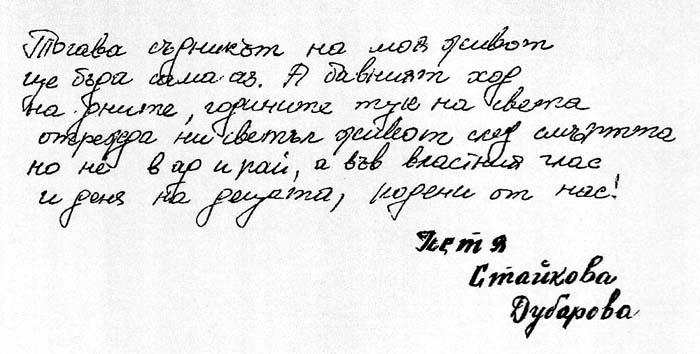 Тогава сърникът на моя живот
ще бъда сама аз. А бавният ход
на дните, годините тук на света
отрежда ни светъл живот след смъртта
но не в ад и рай, а във властния глас
и деня на децата, родени от нас!
Петя
Стайкова
Дубарова